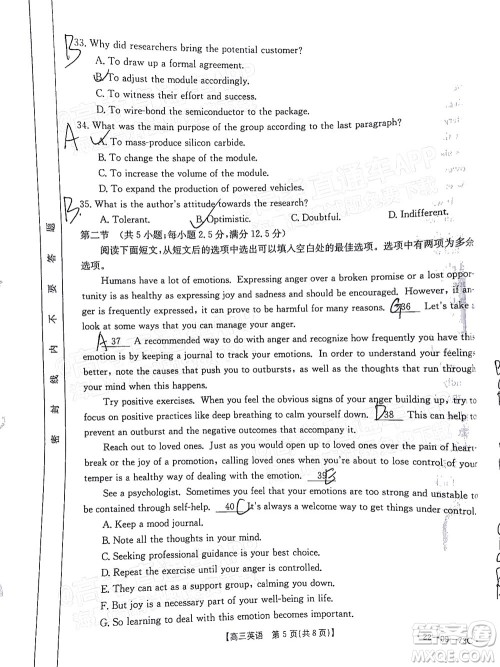 B 33. Why did researchers bring the potential customer?
A. To draw up a formal agreement.
B. To adjust the module accordingly.
C. To witness their effort and success.
D. To wire-bond the semiconductor to the package.
A 34. What was the main purpose of the group according to the last paragraph?
A. To mass-produce silicon carbide.
B. To change the shape of the module.
C. To increase the volume of the module.
D. To expand the production of powered vehicles.
B 35. What is the author's attitude towards the research?
A. Tolerant. B. Optimistic. C. Doubtful. D. Indifferent.
第二节 (共5小题;每小题2.5分,满分12.5分)
阅读下面短文,从短文后的选项中选出可以填入空白处的最佳选项。选项中有两项为多余
选项。
Humans have a lot of emotions. Expressing anger over a broken promise or a lost oppor-
tunity is as healthy as expressing joy and sadness or being excited. However, if feelings of an-
ger is frequently expressed, it can prove to be harmful for many reasons. G 36 Let's take a
look at some ways that you can manage your anger.
A 37 A recommended way to deal with anger and recognize how frequently you have this
emotion is by keeping a track of your emotions. In order to understand your feelings better,
note the causes that push you to outbursts, and what affects your mood. Write what's on
your mind when this happens.
Try positive exercises. When you see obvious signs of your anger building up, try to focus
on positive practices like deep breathing to calm yourself down. D 38 This can help you to
prevent an outburst and the negative outcomes that accompany it.
Reach out to loved ones. Just as you would go to loved ones over the pain of heart-
break or the joy of a promotion, calling loved ones when you are about to lose control of your
temper is a healthy way of dealing with the emotion. 39 E
See a psychologist. Sometimes, you might find your emotions are too strong and unstable to
be contained through self-help. 40 C It's always a welcome way to get yourself in control.
A. Keep a mood journal.
B. Note all the thoughts in your mind.
C. Seeking professional guidance is your best choice.
D. Repeat the exercises till you feel you are controlling the emotion.
E. They can act as a support group, calming you down.
F. But any loved one might not be able to offer help.
G. So learning to deal with this emotion becomes important.
【高三英语 第5页(共8页)】
密 封 线 内 不 要 答 题